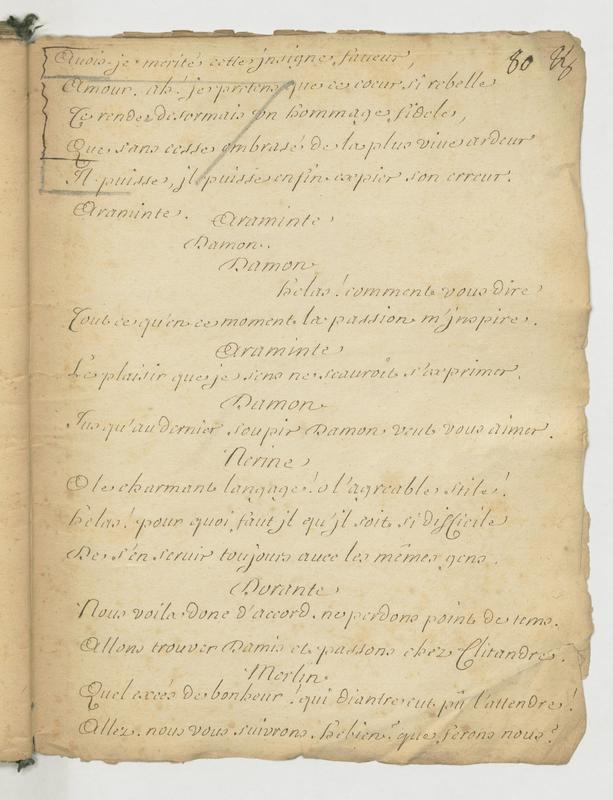 80 86
Avois-je merité cette jnsigne faveur,
Amour. ah! je pretens que ce coeur si rebelle
Te rende desormais un hommage fidele,
Que sans cesse embrasé de la plus vive ardeur
Il puisse, jl puisse enfin expier son erreur.
Araminte. Araminte
Damon.
Damon
helas! comment vous dire
Tout ce qu'en ce moment la passion m'jnspire.
Araminte
Le plaisir que je sens ne scauroit s'exprimer.
Damon
Jusqu'au dernier soupir Damon veut vous aimer.
Nerine
O le charmant langage! o l'agreable stile!
helas! pour quoi faut jl qu'jl soit si difficile
De s'en servir toujours avec les mêmes gens.
Dorante
Nous voila donc d'accord. ne perdons point de tems.
Allons trouver Damis et passons chez Clitandre.
Merlin
Quel excés de bonheur! qui diantre eut pû l'attendre!
Allez. nous vous suivrons. hebien? que ferons nous?